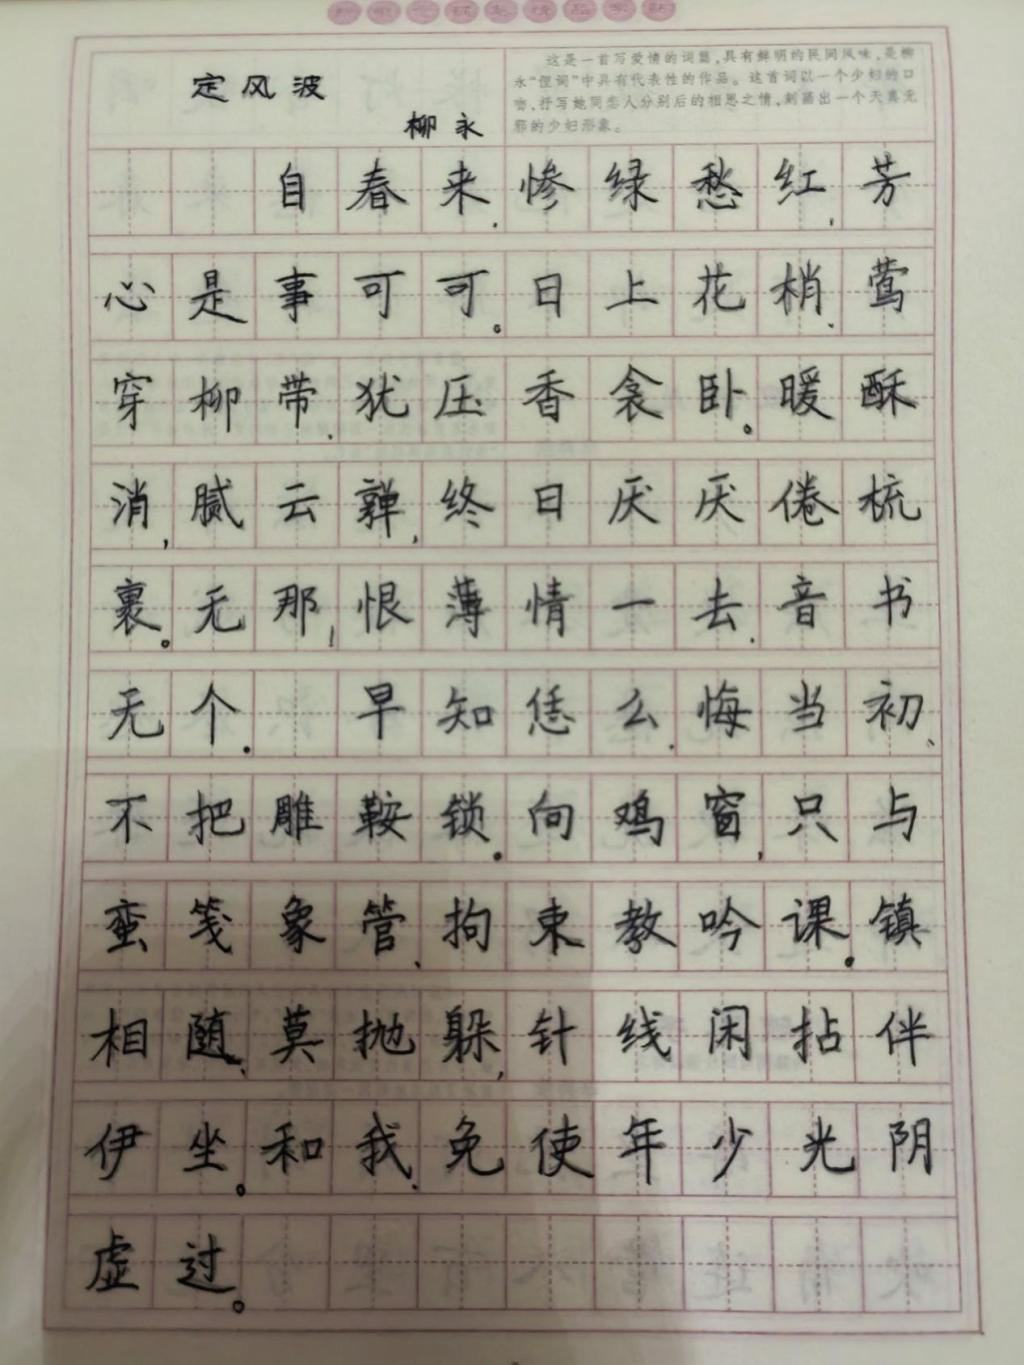 定风波
柳永
这是一首写爱情的词篇，具有鲜明的民间风味，是柳
永“俚词”中具有代表性的作品。这首词以一个少妇的口
吻，抒写她同恋人分别后的相思之情，刻画出一个天真无
邪的少妇形象。
自春来，惨绿愁红，芳
心是事可可。日上花梢，莺
穿柳带，犹压香衾卧。暖酥
消，腻云亸，终日厌厌倦梳
裹。无那，恨薄情一去，音书
无个。早知恁么，悔当初、
不把雕鞍锁。向鸡窗，只与
蛮笺象管，拘束教吟课。镇
相随，莫抛躲，针线闲拈伴
伊坐。和我，免使年少光阴
虚过。